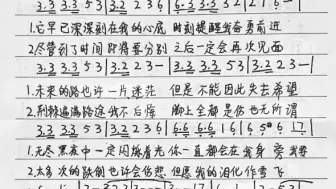 3.3 3.3 5 3 | 3.2 2 3 6 | 6.3 3.3 3 2 | 2 1 6 — |
1.它早已深深刻在我的心底 时刻提醒我奋勇前进
2.尽管到了时间 即将要分别 之后一定会再次见面
3.3 3.3 5 3 | 3.2 2 3 6 | 3.3 3.3 2 2 | 3 — — |
1.未来的路也许一片迷茫 但是不能因此失去希望
2.荆棘遍满路途 我不后悔 脚上全都是伤也无所谓
3.3 3.3 5 3 | 3.2 2 3 6 | 6.6 6.6 1 6 | 6 5# 6 1 7 |
1.无尽黑夜中一定闪烁着光 你一直都会在我身旁
2.太多次的跌倒也许会伤悲 但愿我的泪化作雪飞